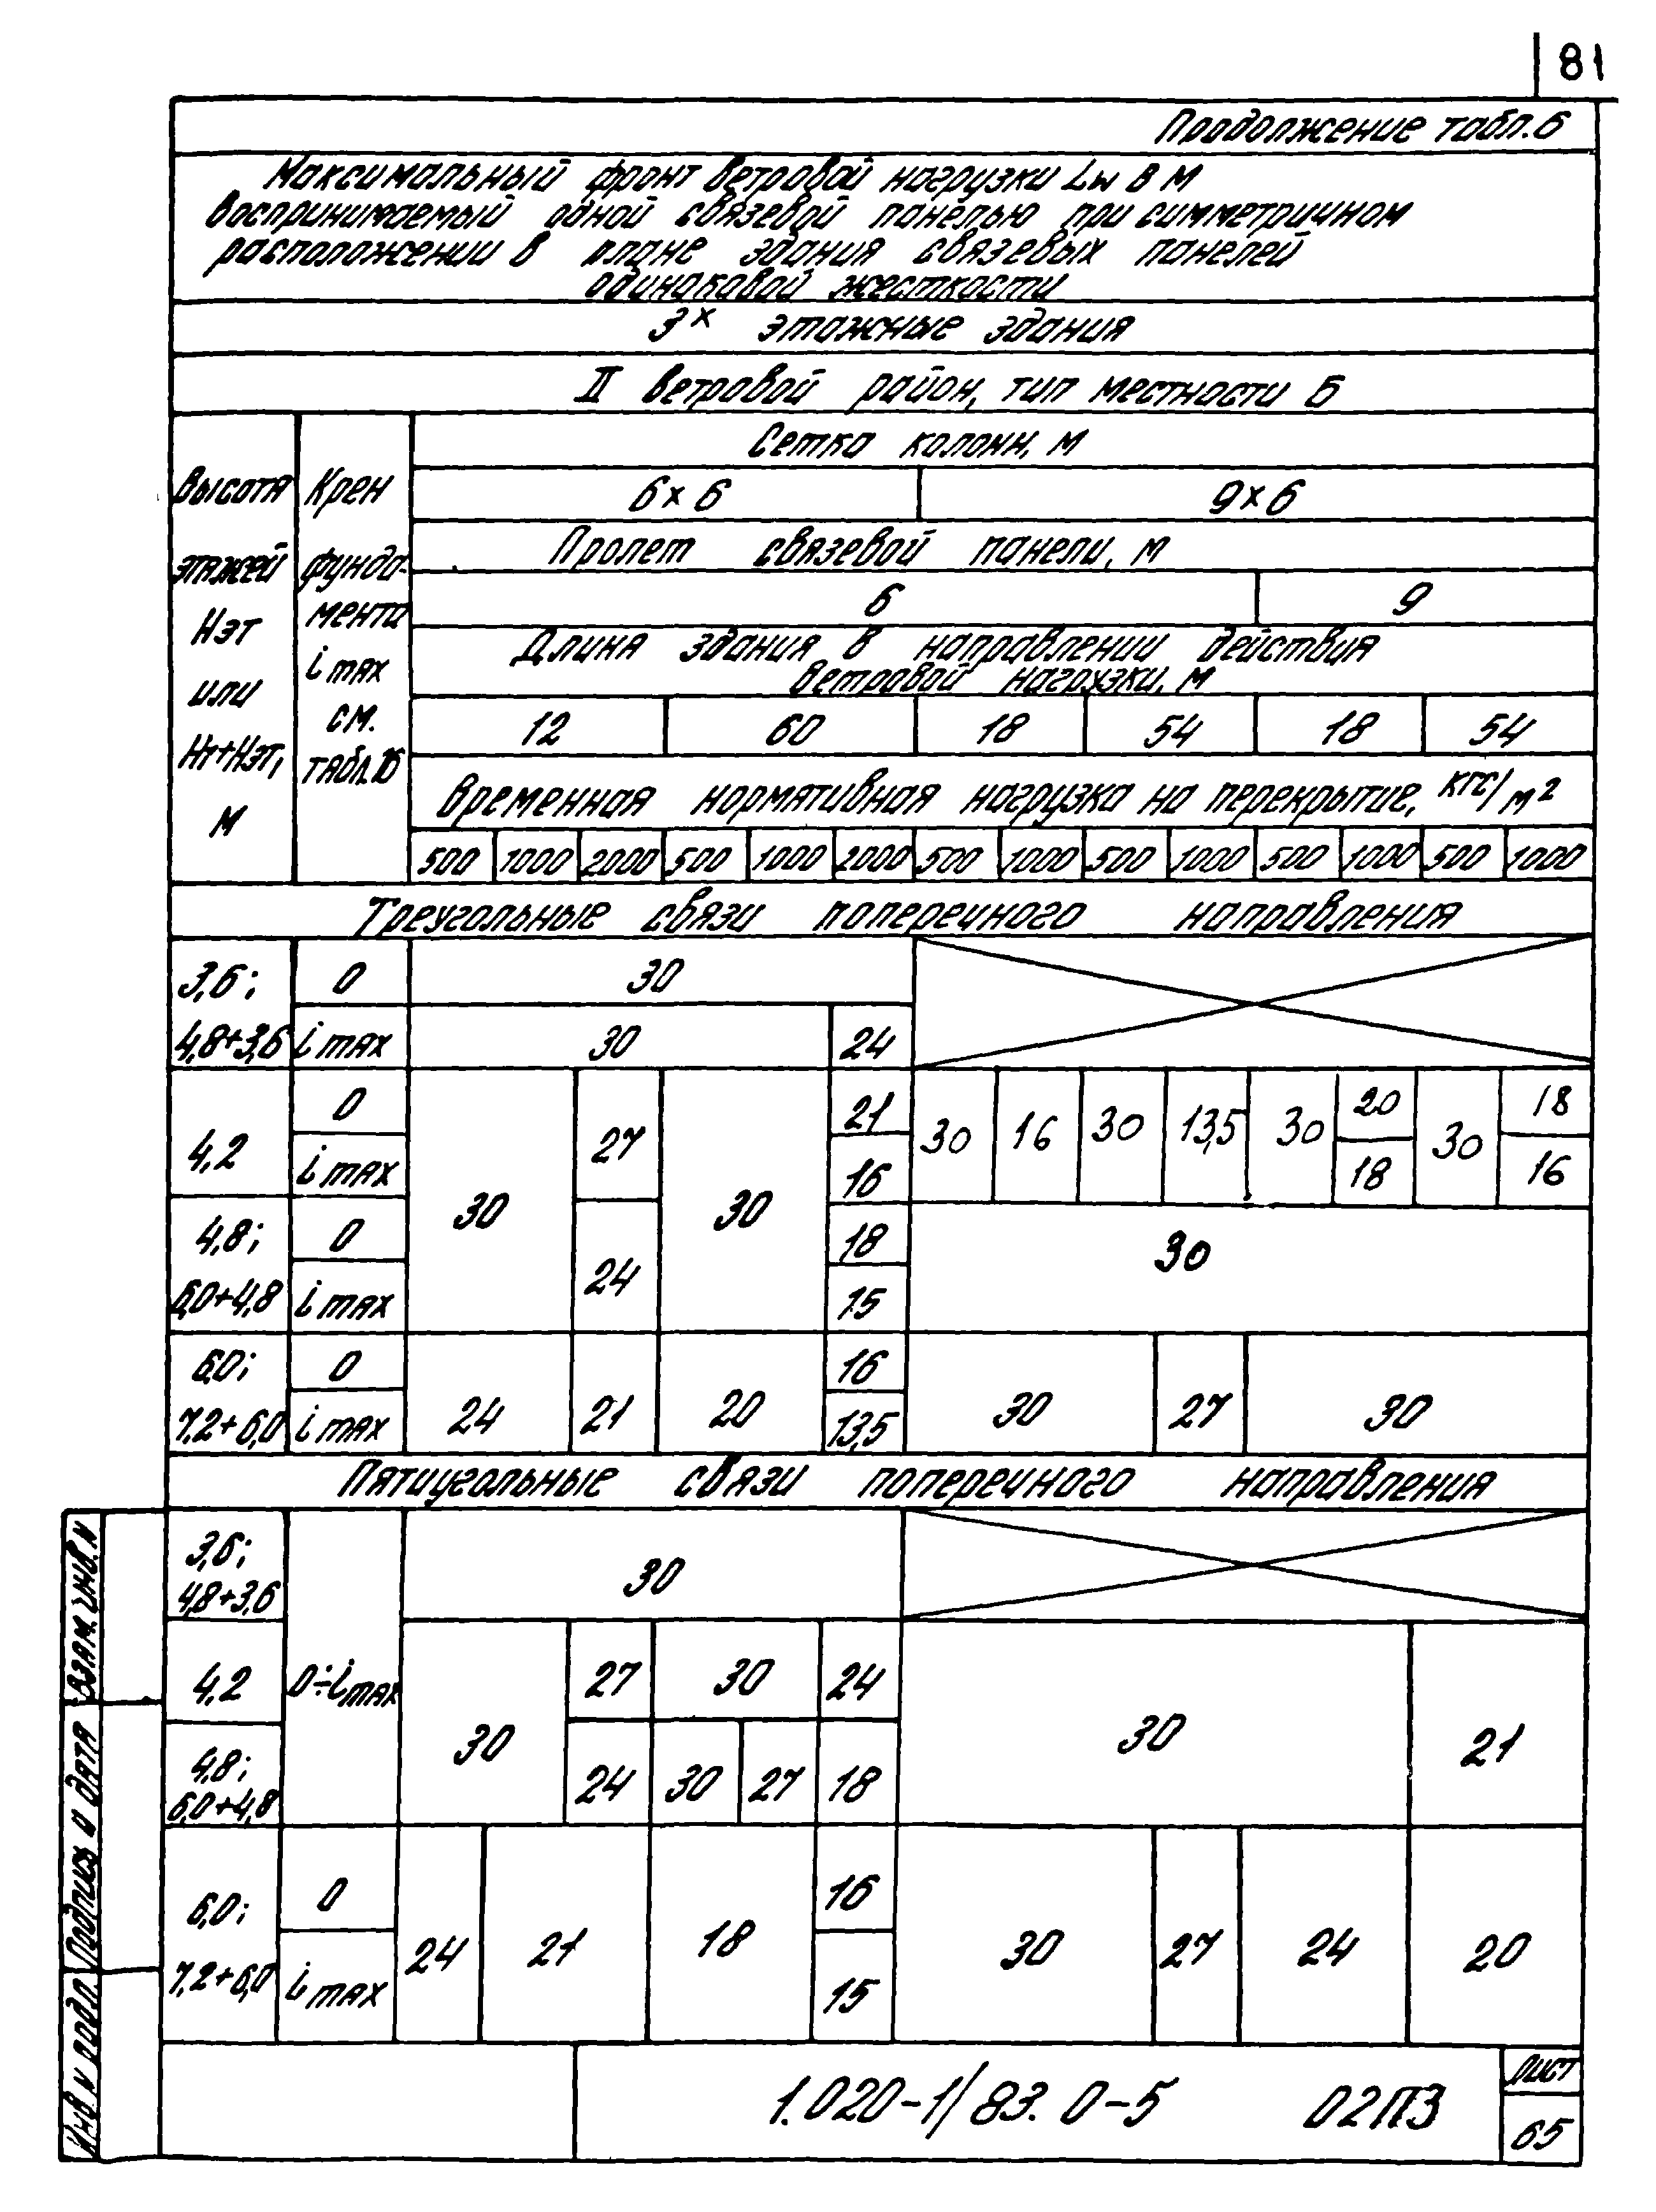 81
Продолжение табл. 6
Максимальный фронт ветровой нагрузки Lw в м
воспринимаемый одной связевой панелью при симметричном
расположении в плане здания связевых панелей
одинаковой жесткости
3х этажные здания
II ветровой район, тип местности Б
Высота этажей Нэт или Нт+Нэт, м
Крен фундамента i max см. табл. 16
Сетка колонн, м
6×6 9×6
Пролет связевой панели, м
6 9
Длина здания в направлении действия
ветровой нагрузки, м
12 60 18 54 18 54
Временная нормативная нагрузка на перекрытие, кгс/м2
500 1000 2000 500 1000 2000 500 1000 500 1000 500 1000 500 1000
Треугольные связи поперечного направления
3,6; 0 30
4,8+3,6 i max 30 24
0 21 30 16 30 13,5 30 20 30 18
4,2 27
i max 16 18 16
30 30
4,8; 0 18 30
24
6,0+4,8 i max 15
6,0; 0 16
7,2+6,0 i max 24 21 20 13,5 30 27 30
Пятиугольные связи поперечного направления
3,6;
4,8+3,6 30
4,2 0÷i max 27 30 24
30 30 21
4,8;
6,0+4,8 24 30 27 18
6,0; 0 16
24 21 18 30 27 24 20
7,2+6,0 i max 15
Взам. инв. н
Подпись и дата
Инв н подл
1.020-1/83. 0-5 02ПЗ
Лист
65